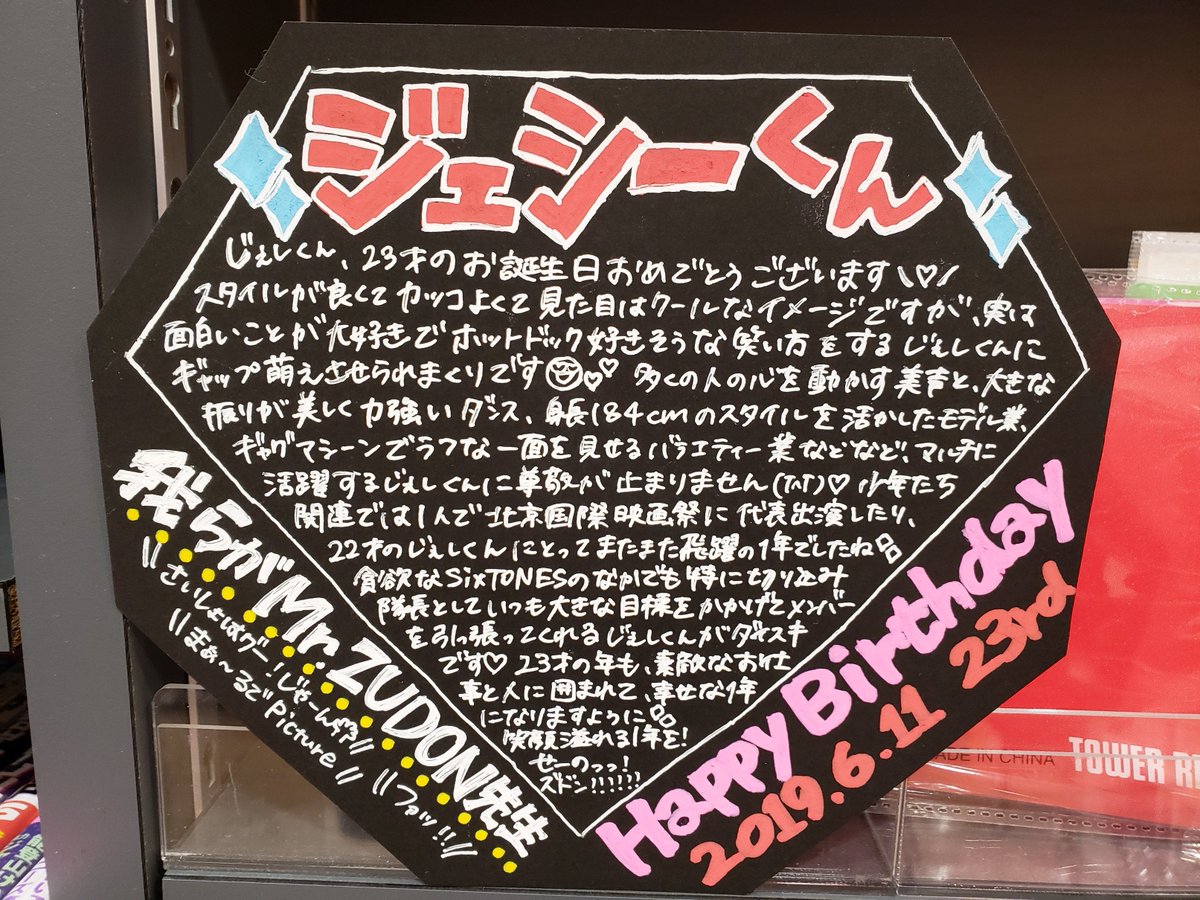 ジェシーくん
じぇしくん、23才のお誕生日おめでとうございます\♡/
スタイルが良くてカッコよくて見た目はクールなイメージですが、実は
面白いことが大好きでホットドック好きそうな笑い方をするじぇしくんに
ギャップ萌えさせられまくりです 多くの人の心を動かす美声と、大きな
振りが美しく力強いダンス、身長184cmのスタイルを活かしたモデル業、
ギャグマシーンでラフな一面を見せるバラエティー業などなど、マルチに
活躍するじぇしくんに尊敬が止まりません(TπT)♡ 少年たち
関連では1人で北京国際映画祭に代表出演したり、
22才のじぇしくんにとってまたまた飛躍の1年でしたね
貪欲なSixTONESのなかでも特に切り込み
隊長としていつも大きな目標をかかげてメンバー
を引っ張ってくれるじぇしくんがダイスキ
です♡ 23才の年も、素敵なお仕
事と人に囲まれて、幸せな1年
になりますように
笑顔溢れる1年を!
せーのっっ!
ズドン!!!!!!
我らがMr.ZUDON先生
\\さいしょはグー!じゃーんけん//
\\まぁ〜るでPicture//
\\ファッ!!//
Happy Birthday
2019.6.11 23rd
MADE IN CHINA
TOWER RE